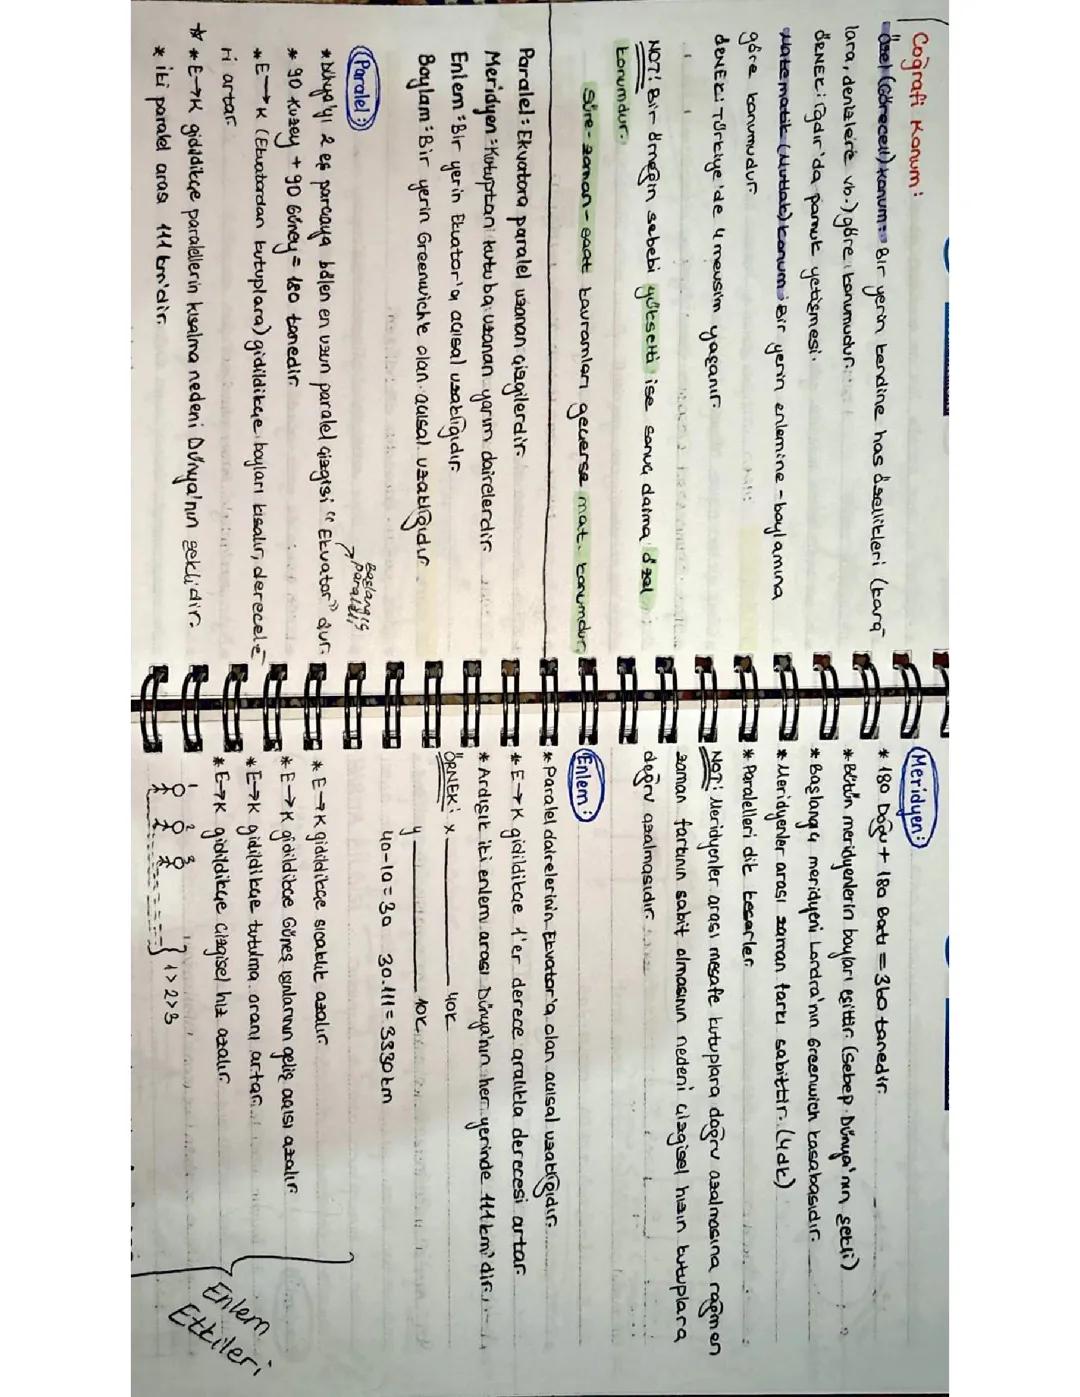 Coğrafi Konum:
Özel (Göreceli) konum: Bir yerin kendine has özellikleri (kara
lara, denizlere vb.) göre konumudur.
ÖRNEK: Iğdır'da pamuk yetişmesi.
Matematik (Mutlak) konum: Bir yerin enlemine - boylamına
göre konumudur.
ÖRNEK: Türkiye'de 4 mevsim yaşanır.
NOT: Bir örneğin sebebi yükselti ise sonuç daima özel
konumdur.
Süre - zaman - saat kavramları geçerse mat. konumdur.
Paralel: Ekvatora paralel uzanan çizgilerdir.
Meridyen: Kutuptan kutuba uzanan yarım dairelerdir.
Enlem: Bir yerin Ekvator'a açısal uzaklığıdır.
Boylam: Bir yerin Greenwich'e olan açısal uzaklığıdır.
Paralel:
* Dünya'yı 2 eş parçaya bölen en uzun paralel çizgisi "Ekvator" dur.
→ Başlangıç paraleli
* 90 Kuzey + 90 Güney = 180 tanedir.
* E→K (Ekvatordan kutuplara) gidildikçe boyları kısalır, derecele
ri artar.
* * E→K gidildikçe paralellerin kısalma nedeni Dünya'nın şeklidir.
* iki paralel arası 111 km'dir.
Meridyen:
* 180 Doğu + 180 Batı = 360 tanedir.
* Bütün meridyenlerin boyları eşittir. (Sebep Dünya'nın şekli)
* Başlangıç meridyeni Londra'nın Greenwich kasabasıdır.
* Meridyenler arası zaman farkı sabittir. (4 dk)
* Paralelleri dik keserler.
NOT: Meridyenler arası mesafe kutuplara doğru azalmasına rağmen
zaman farkının sabit olmasının nedeni çizgisel hızın kutuplara
doğru azalmasıdır.
Enlem:
* Paralel dairelerinin Ekvator'a olan açısal uzaklığıdır.
* E→K gidildikçe 1'er derece aralıkla derecesi artar.
* Ardışık iki enlem arası Dünya'nın her yerinde 111 km'dir.
ÖRNEK: x 40K
y 10K
40-10=30 30.111=3330 km
* E→K gidildikçe sıcaklık azalır.
* E→K gidildikçe Güneş ışınlarının geliş açısı azalır.
* E→K gidildikçe tutulma oranı artar.
* E→K gidildikçe çizgisel hız azalır.
1 2 3
1>2>3
Enlem
Etkileri